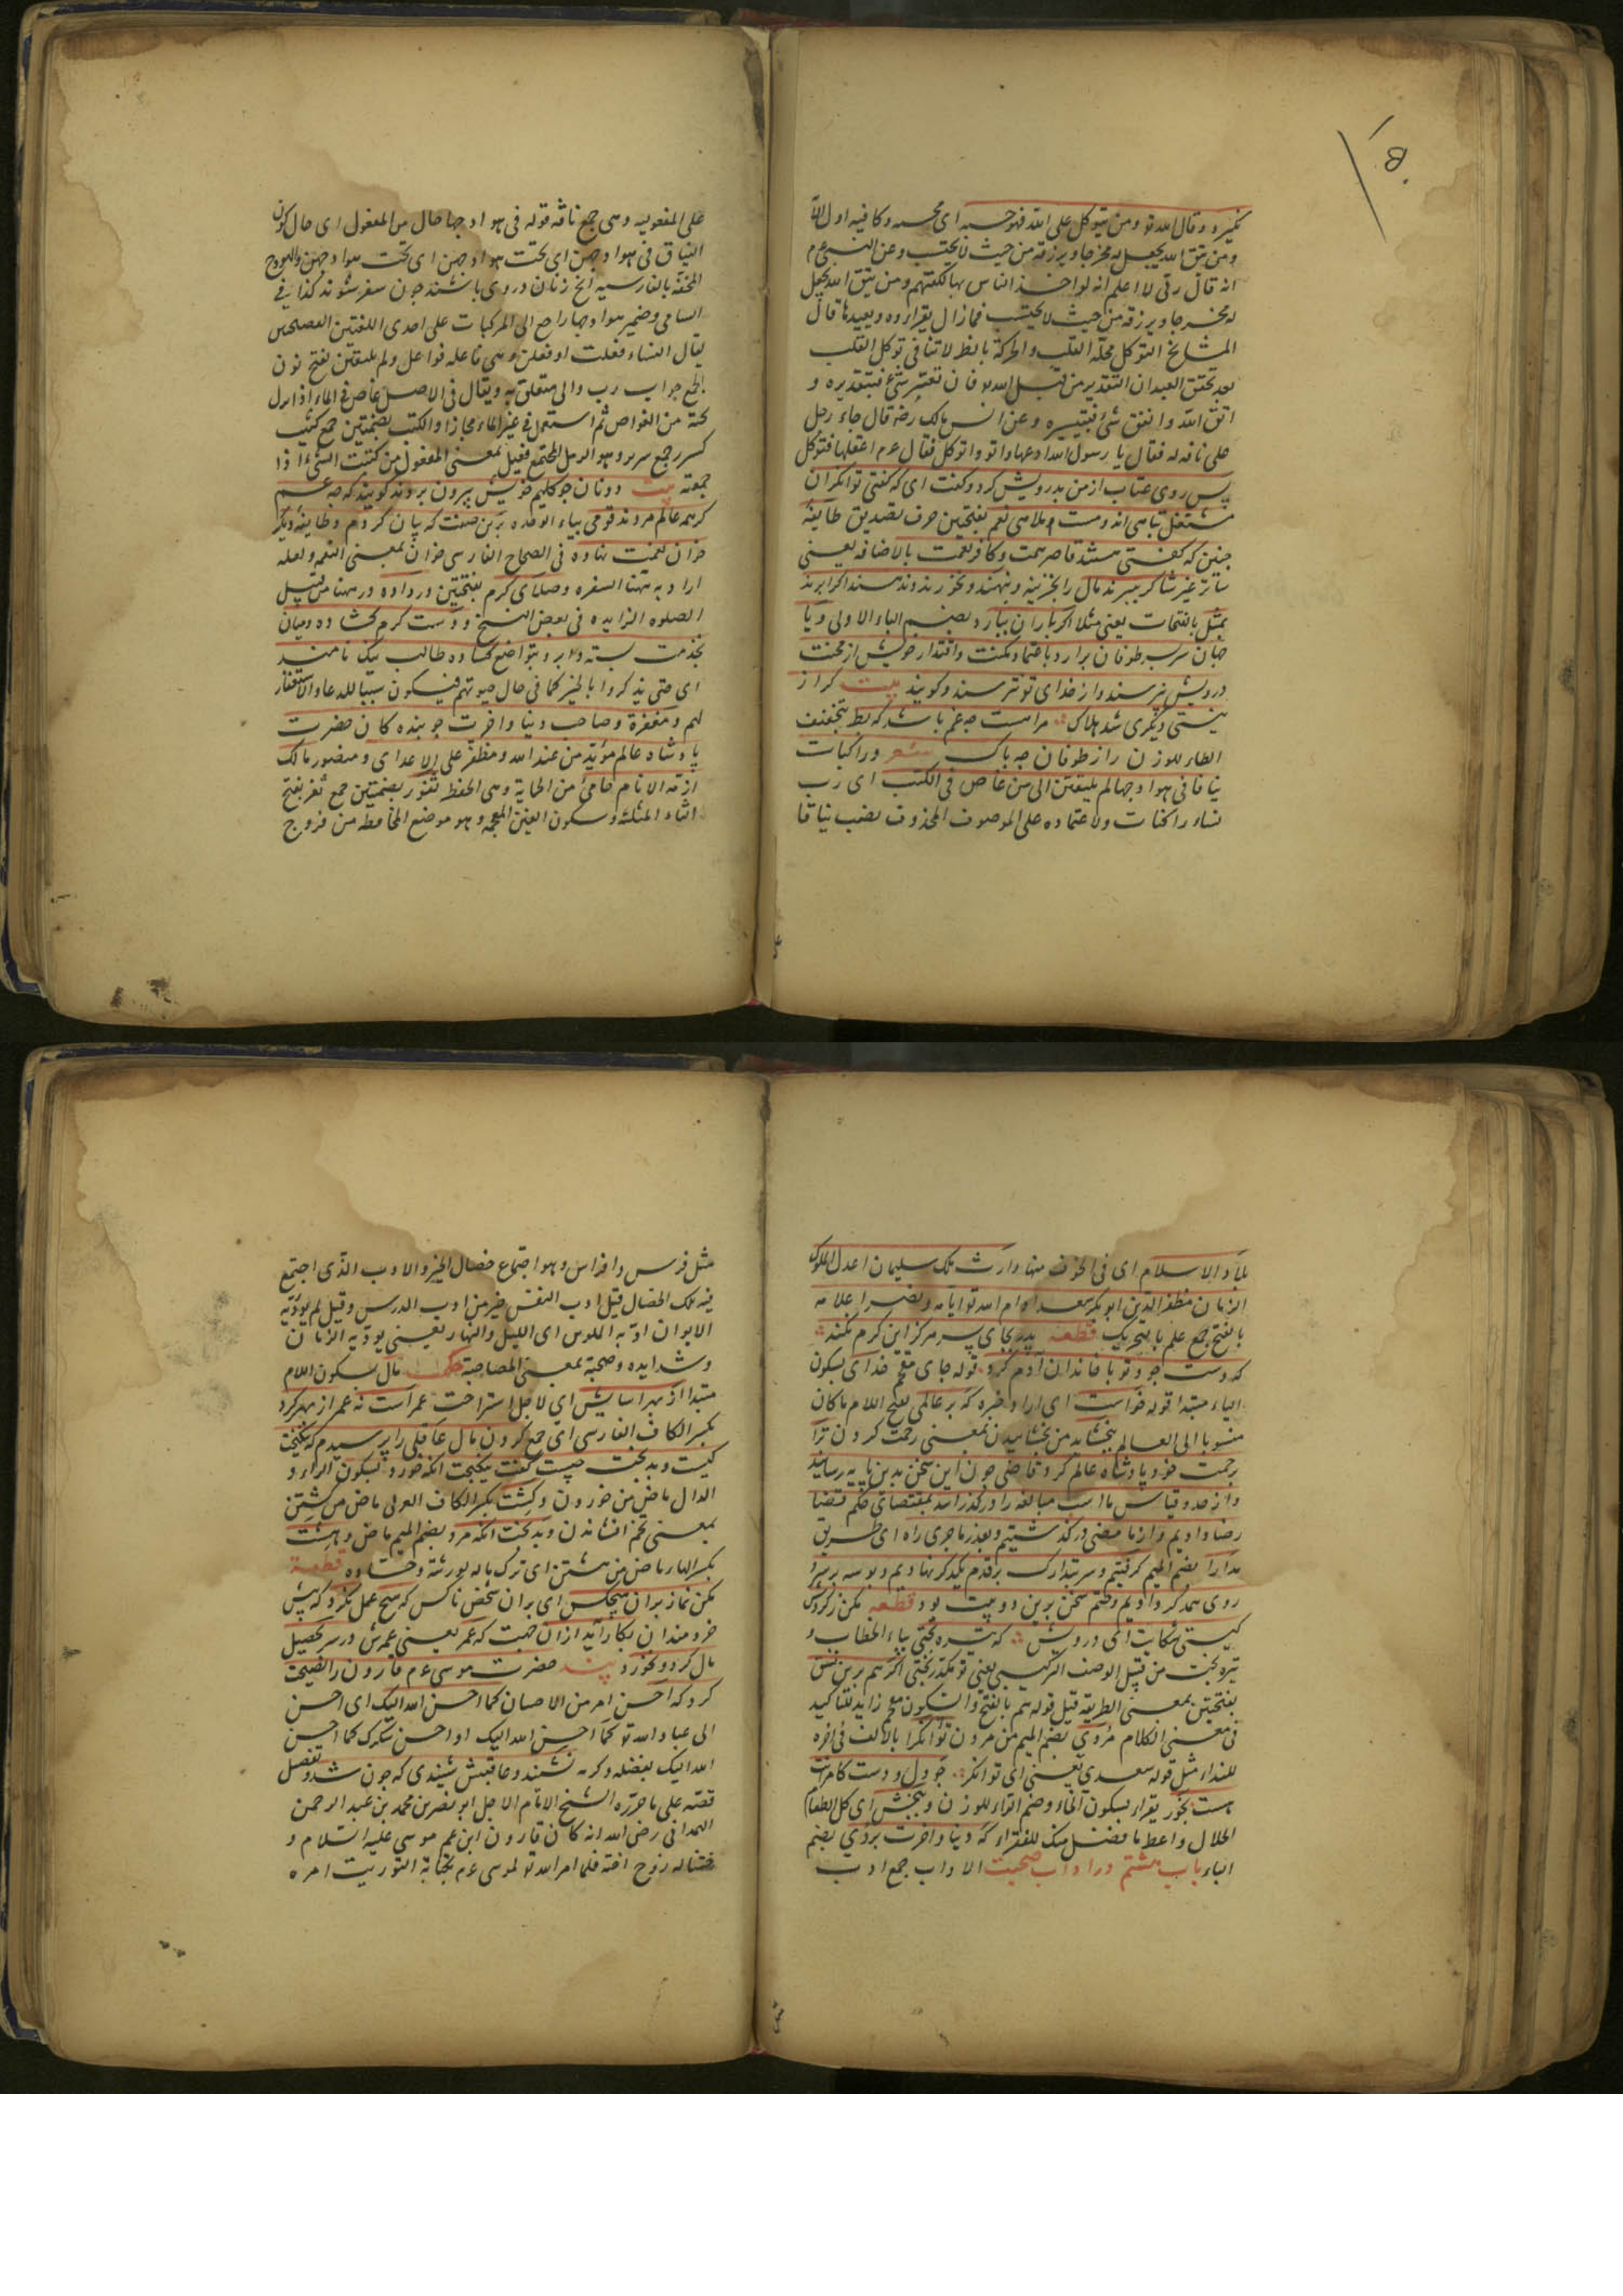 ومن يتوكل على الله فهو حسبه اى محسبه وكافيه اول الآية
ومن يتق الله يجعل له مخرجا ويرزقه من حيث لا يحتسب وعن النبى عم
انه قال انى لا اعلم آية لو اخذ الناس بها لكفتهم ومن يتق الله يجعل
له مخرجا ويرزقه من حيث لا يحتسب فما زال يقرا ويعيدها قال
المشايخ التوكل محله القلب والحركة بالظ لا تنافى توكل القلب
بعد تحقق العبد ان التقدير من قبل الله تو فان تعسر شئ فبتقديره و
اتفق شئ فبتيسيره وعن انس بن مالك رضه قال جاء رجل
على ناقة له فقال يا رسول الله ادعها واتوكل فقال عم اعقلها وتوكل
پس روى عتاب از من بدرويش كرد وكفت اى كه كفتى توانكران
مشتغل تباهى اند ومست ملاهى نعم بفتحتين حرف تصديق طايفة
چنين كه كفتى هستند قاصر همت وكافر نعمت بالاضافه يعنى
ساتر غير شاكر ببرند مال را بخزينه وبنهند ونخورند وندهند اكر ابر ند
بمثل بالفتحات يعنى مثلا اكر باران نبارد بضم الباء الاولى ويا
جهان سربسر طوفان برارد باعتماد مكنت واقتدار خويش از محنت
درويش نپرسند واز خداى تو نترسند وكويند بيت كر از
نيستى ديكرى شد هلاك مرا هست چه غم باشد كه بط بتخفيف
الطاء للوزن را ز طوفان چه باك شعر وراكبات
نياقا فى هوادجها لم يلتفتن الى من غاص فى الكتب اى رب
نساء راكبات ولاعتماده على الموصوف المحذوف نصب نياقا
على المفعولية وهى جمع ناقة قوله فى هوادجها حال من المفعول اى حال كون
النياق فى هوادجهن اى تحت هوادجهن اى تحت هوادجهن والهودج
المحفة بالفارسية الخ زنان در وى باشند چون سفر شوند كذا فى
السامى وضمير هوادجها راجع الى المركبات على احدى اللغتين الفصيحتين
يقال النساء فعلت او فعلن وهى فاعله فواعل ولم يلتفتن بفتح نون
الجمع جواب رب والى متعلق به ويقال فى الاصل غاص فى الماء اذا نزل
تحته من الغواص ثم استعمل فى غير الماء مجازا والكتب بضمتين جمع كثيب
كسرر جمع سرير وهو الرمل المجتمع فعيل بمعنى المفعول من كثبت الشئ اذا
جمعته بيت دونان چو كليم خويش بيرون بردند كويند كه چه غم
كر همه عالم مردند قومى بياء الوحده برين صفت كه بيان كردم وطايفة ديكر
خوان نعمت نهاده فى الصحاح الفارسى خوان بمعنى النعم ولعله
اراد به ههنا السفره وصلاى كرم بفتحتين در داده وههنا من قبيل
الصلوه الزايده فى بعض النسخ ودست كرم كشاده وميان
بخدمت بسته وابرو بتواضع كشاده طالب نيك نامند
اى حتى يذكروا بالخير كما فى حال حيوتهم فيكون سببا للدعاء والاستغفار
لهم ومغفرة وصاحب دنيا واخرت چو بنده كان حضرت
پادشاه عالم مؤيد من عند الله ومظفر على الاعداى ومنصور مالك
ازمة الانام حامئ من الحماية وهى الحفظ ثغور بضمتين جمع ثغر بفتح
الثاء المثلثه وسكون الغين المعجمه وهو موضع المخافة من فروج
بلاد الاسلام اى فى الخوف منها وارث ملك سليمان اعدل الملوك
الزمان مظفر الدين ابو بكر سعد ادام الله تو ايامه ونصر اعلامه
بالفتح جمع علم بالتحريك قطعه پدر بجاى پسر هركز اين كرم نكند
كه دست جود تو با خاندان آدم كرد قوله جاى مقحم خداى بسكون
الياء مبتدا قوله خواست اى اراد خبره كه بر عالمى بفتح اللام ما كان
منسوبا الى العالم ببخشايد من بخشاييدن بمعنى رحمت كردن ترا
برحمت خود پادشاه عالم كرد قاضى چون اين سخن بدين پايه رسانيد
واز حد وقياس ما اسب مبالغه را در كذرانيد بمقتضاى حكم قضا
رضا داديم واز ما مضى در كذشتيم وبعذر ماجرى راه اى طريق
مدارا بضم الميم كرفتيم وسر بتدارك بر قدم يكديكر نهاديم وبوسه بر سر و
روى همديكر داديم وختم سخن برين دو بيت بود قطعه مكن ز كردش
كيتى شكايت اى درويش كه تيره بختى بياء الخطاب و
تيره بخت من قبيل الوصف التركيبى يعنى تو مكدر بختى اكر هم برين نسق
بفتحتين بمعنى الطريقه قيل قوله هم بالفتح والسكون مقحم زايد للتاكيد
فى معنى الكلام مُردى بضم الميم من مردن توانكرا بالالف فى اخره
للنداء مثل قوله سعديا يعنى اى توانكر چو دل ودست كامرانت
هست بخور يقراء بسكون الخاء وضم الراء للوزن وببخش اى كل الطعام
الحلال واعط ما فضل منك للفقراء كه دنيا واخرت بردى بضم
الباء باب هشتم در اداب صحبت الاداب جمع ادب
مثل فرس وافراس وهو اجتماع خصال الخير والادب الذى اجتمع
فيه تلك الخصال قيل ادب النفس خير من ادب الدرس وقيل لم يؤدبه
الابوان ادبه الملوان اى الليل والنهار يعنى يؤدبه الزمان
وشدايده وصحبة بمعنى المصاحبة حكمت مال بسكون اللام
مبتدا از بهر اسايش اى لاجل استراحت عمر است نه عمر از بهر كرد
بكسر الكاف الفارسى اى جمع كردن مال عاقلى را پرسيدم كه نيكبخت
كيست وبدبخت چيست كفت نيكبخت انكه خورد بسكون الراء و
الدال ماض من خوردن وكِشت بكسر الكاف العربى ماض من كِشتن
بمعنى تخم افشاندن وبدبخت انكه مرد بضم الميم ماض وهِشت
بكسر الهاء ماض من هشتن اى ترك ماله لورثته قطعة
مكن نماز بران هيچكس اى بران شخص ناكس كه هيچ عمل نكرد كه پيش
خردمندان بكار آيد ازان جهت كه عمر يعنى عمرش در سر تحصيل
مال كرد ونخورد پند حضرت موسى عم قارون را نصيحت
كرد كه احسن امر من الاحسان كما احسن الله اليك اى احسن
الى عباد الله تو كما احسن الله اليك او احسن شكرك كما احسن
الله اليك بفضله وكرمه نشنيد وعاقبتش شنيدى كه چون شد وتفصيل
قصته على ما حرره الشيخ الامام الاجل ابو نصر بن محمد بن عبد الرحمن
الهمدانى رضى الله انه كان قارون ابن عم موسى عليه السلام و
ختنا له زوج اخته فلما امر الله تو لموسى عم بكتابة التوريت امره